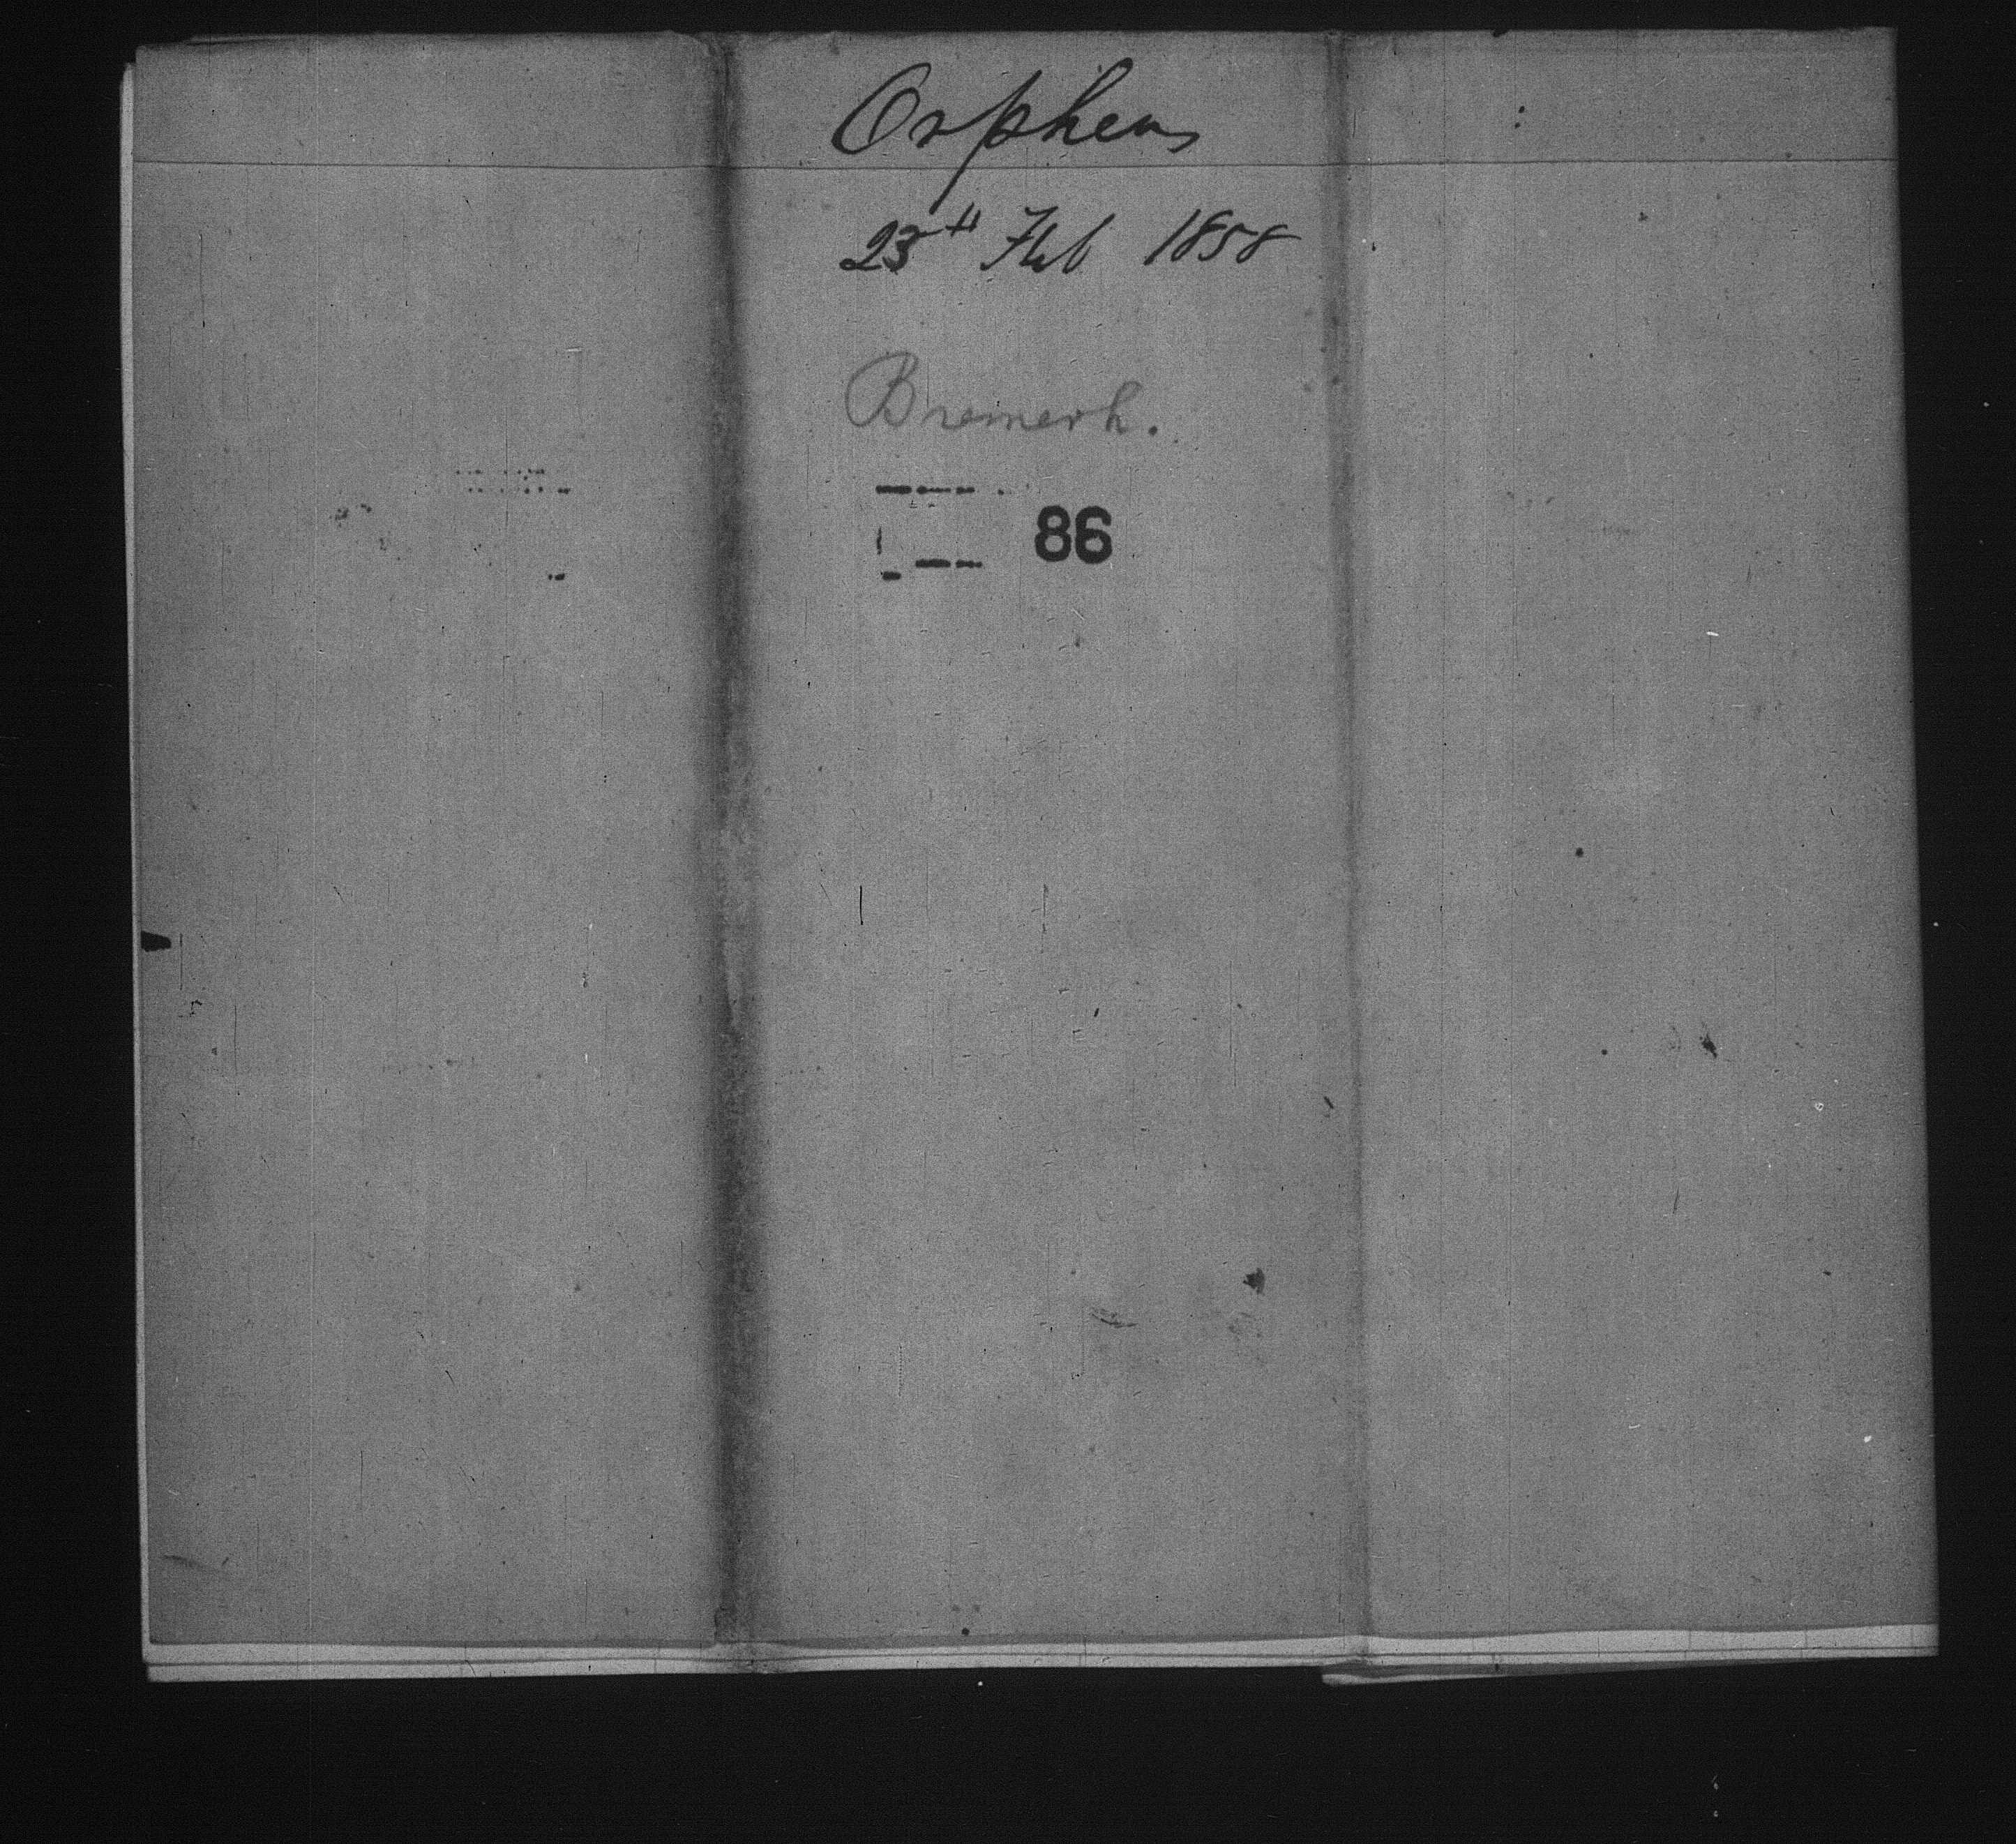 Orpheus
23th Feb 1858
Bremerh.
86